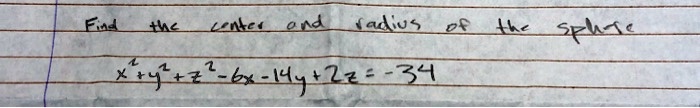 Find the center and radius of the sphere
x²+y²+z²-6x-14y+2z=-34